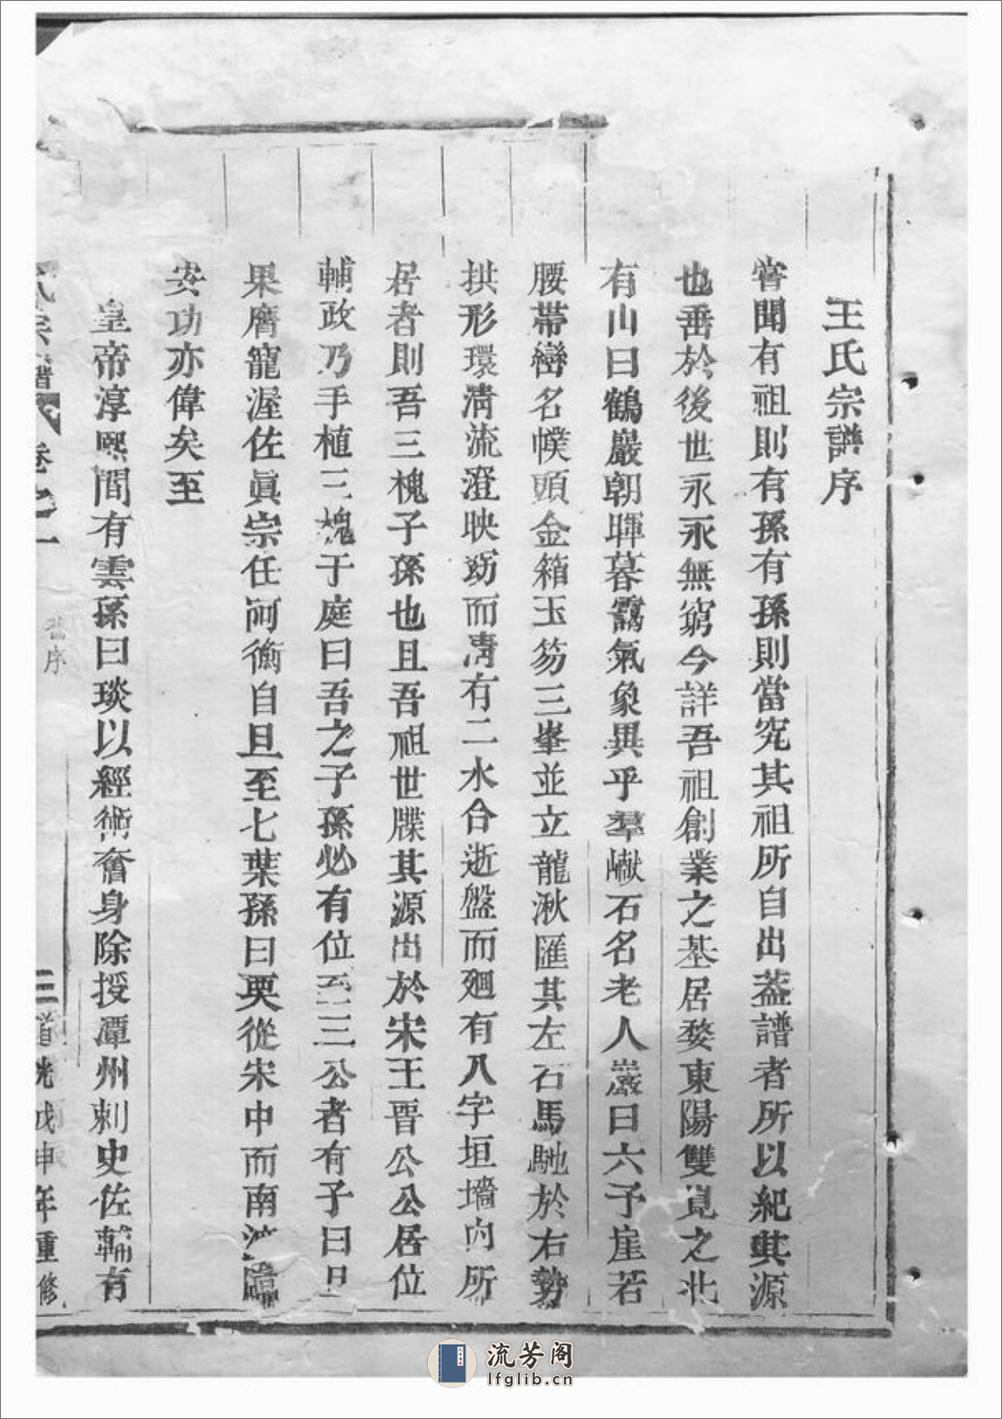 王氏宗譜序
嘗聞有祖則有孫有孫則當究其祖所自出葢譜者所以紀其源
也垂於後世永永無窮今詳吾祖創業之基居婺東陽雙峴之北
有山曰鶴巖朝暉暮靄氣象異乎羣巘石名老人巖曰六予崖若
腰帶巒名幞頭金箱玉笏三峯並立龍湫匯其左石馬馳於右勢
拱形環清流澄映窈而淸有二水合逝盤而廻有八字垣墻內所
居者則吾三槐子孫也且吾祖世牒其源出於宋王晋公公居位
輔政乃手植三槐于庭曰吾之子孫必有位至三公者有子曰旦
果膺寵渥佐眞宗任阿衡自旦至七葉孫曰㮚從宋中而南渡臨
安功亦偉矣至
皇帝淳熙間有雲孫曰琰以經術奮身除授潭州刺史佐輔有
氏宗譜 卷之一 舊序 三 道光戊申年重修
流芳阁
lfglib.cn